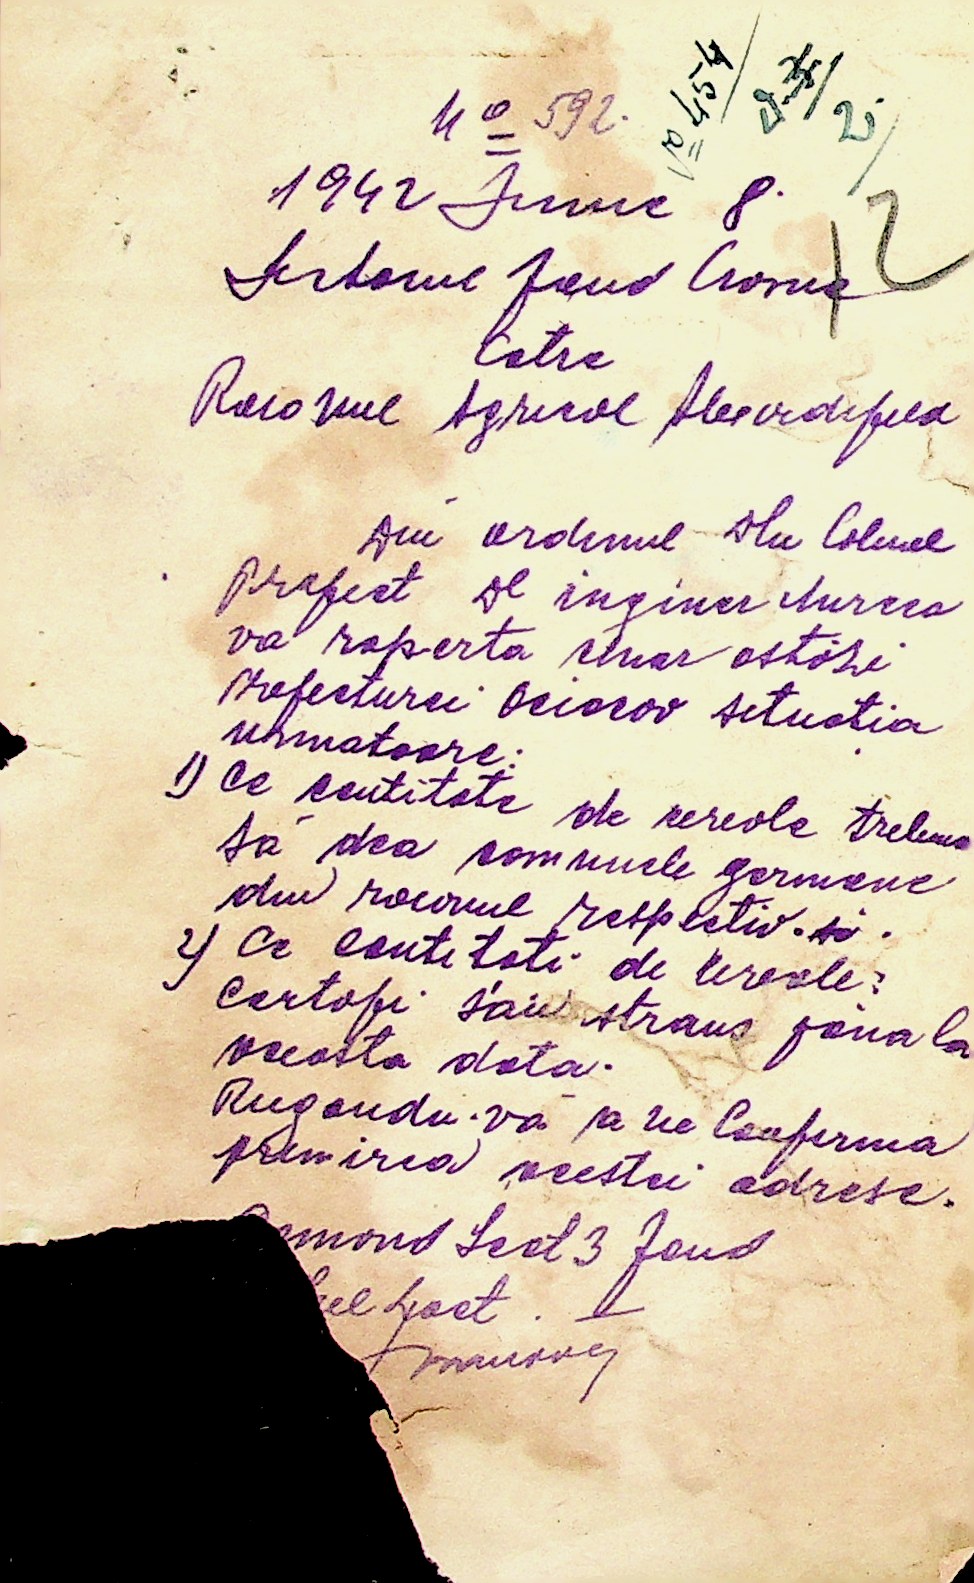 No 592.
No 454/
1942 Iunie 8.
12
Sectorul Jand Crovna
Catre
Raionul Agricol
Din ordinul Dlui Colonel
Prefect Dl inginer Mircea
va raporta chiar astăzi
Prefecturei Oceacov situatia
urmatoare:
1) Ce cantitate de cereale trebuie
să dea comunele germane
din raionul respectiv. si.
2) Ce cantitati de cereale:
Cartofi s'au strans pana la
aceasta data.
Rugandu-vă a ne Confirma
primirea acestei adrese.
Sect 3 Jand